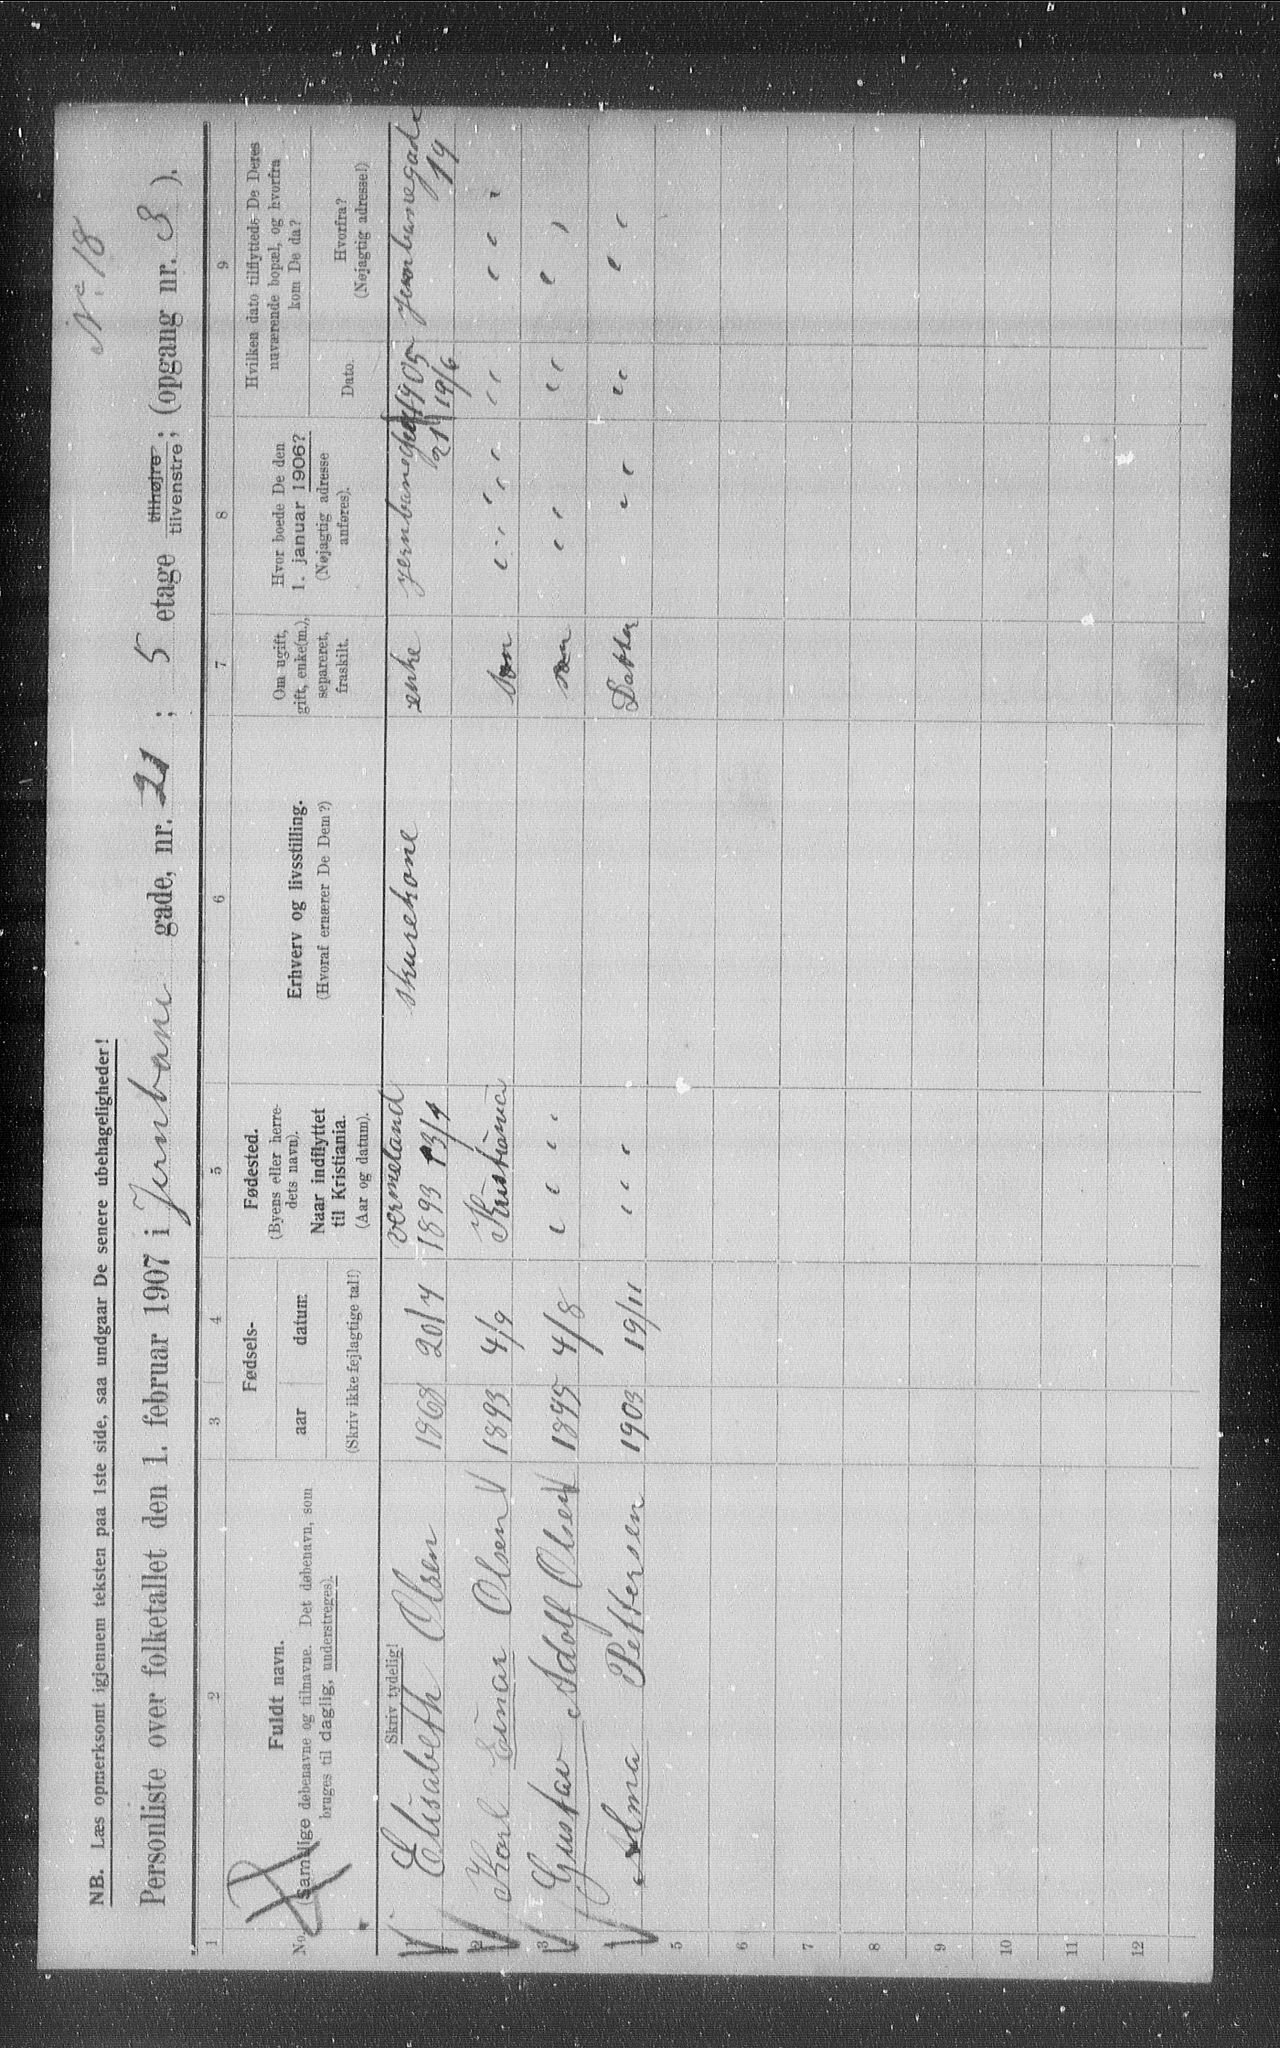 No 18
NB. Læs opmerksomt igjennem teksten paa 1ste side, saa undgaar De senere ubehageligheder!
Personliste over folketallet den 1. februar 1907 i Jernbane gade, nr. 21 ; 5 etage tilhøjre tilvenstre; (opgang nr. 3 ).
1 2 3 4 5 6 7 8 9
No.
Fuldt navn.
(Samtlige døbenavne og tilnavne. Det døbenavn, som
bruges til daglig, understreges).
Fødsels-
aar datum
(Skriv ikke fejlagtige tal!)
Fødested.
(Byens eller herre-
dets navn).
Naar indflyttet
til Kristiania.
(Aar og datum).
Erhverv og livsstilling.
(Hvoraf ernærer De Dem?)
Om ugift,
gift, enke(m.),
separeret,
fraskilt.
Hvor boede De den
1. januar 1906?
(Nøjagtig adresse
anføres).
Hvilken dato tilflyttede De Deres
nuværende bopæl, og hvorfra
kom De da?
Dato.
Hvorfra?
(Nøjagtig adresse!)
Skriv tydelig!
1 Elisabeth Olsen 1868 20/4 vermeland 1893 13/4 skurekone enke 21 1905 19/6 Jernbanegade 19
2 Karl Einar Olsen 1893 4/9 Kristiania søn " " " "
3 Gustav Adolf Olsen 1895 4/8 " " " " søn " " " " " "
4 Alma Pettersen 1903 19/11 " " " Datter " " " " " "
5
6
7
8
9
10
11
12